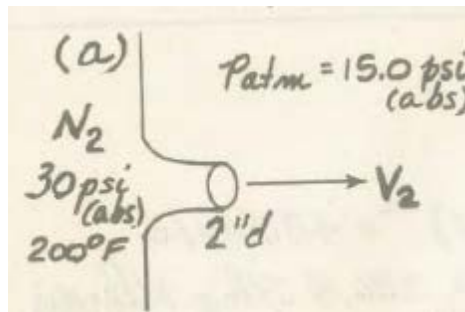 (a)
Patm = 15.0 psi
(abs)
N2
30 psi
(abs)
200°F
2"d
V2